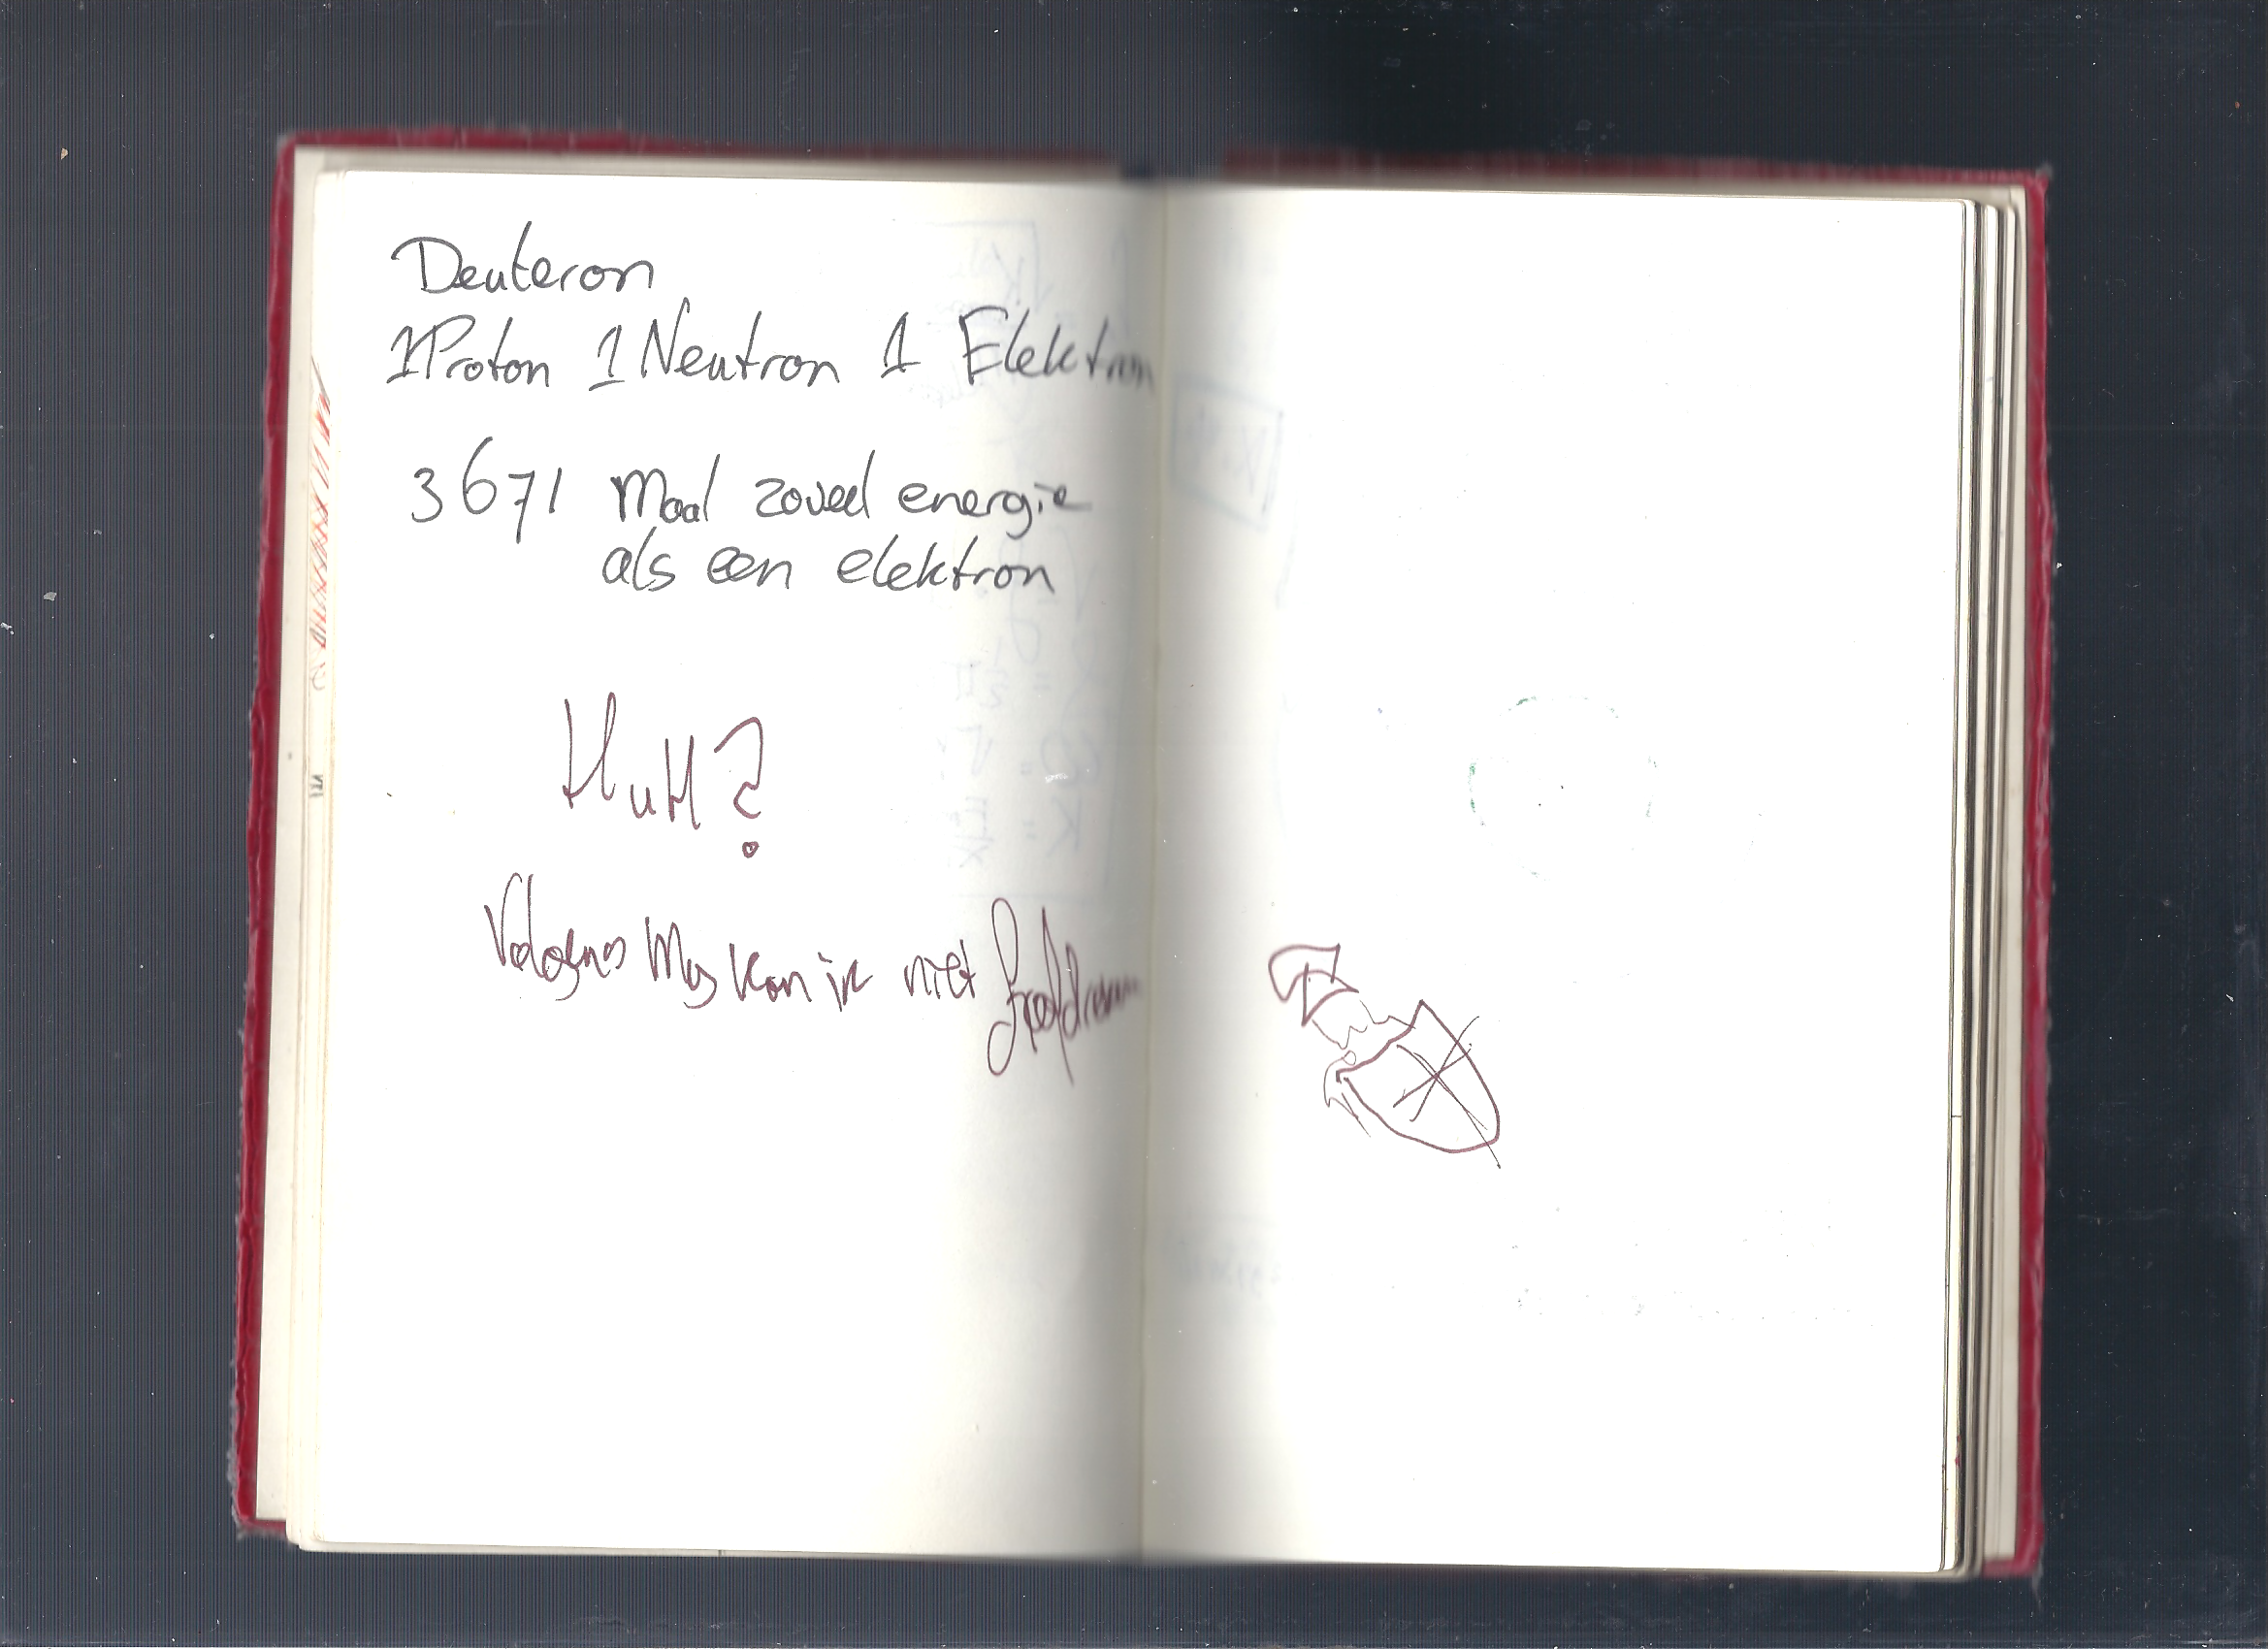 Deuteron
1 Proton 1 Neutron 1 Elektron
3671 maal zoveel energie
als een elektron
HuH?
Volgens Mij kan ik niet